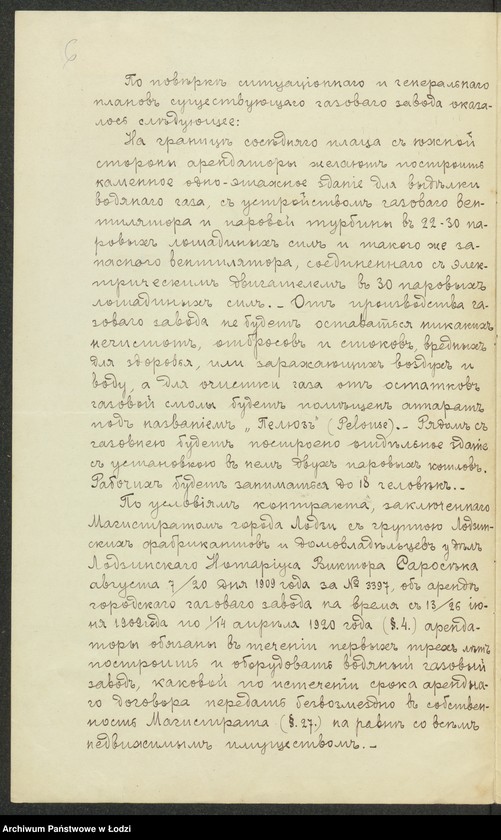 6
По повѣркѣ ситуаціоннаго и генеральнаго
плановъ существующаго газоваго завода оказа-
лось слѣдующее:
На границѣ сосѣдняго плаца съ южной
стороны арендаторы желаютъ построить
каменное одно-этажное зданіе для выдѣлки
водянаго газа, съ устройствомъ газоваго вен-
тилятора и паровой турбины въ 22-30 па-
ровыхъ лошадиныхъ силъ и такого же за-
паснаго вентилятора, соединеннаго съ элек-
трическимъ двигателемъ въ 30 паровыхъ
лошадиныхъ силъ. - Отъ производства га-
зоваго завода не будетъ оставаться никакихъ
нечистотъ, отбросовъ и стоковъ, вредныхъ
для здоровья, или заражающихъ воздухъ и
воду, а для очистки газа отъ остатковъ
газовой смолы будетъ помѣщенъ аппаратъ
подъ названіемъ „Пелюзъ" (Pelouse). - Рядомъ съ
газовнею будетъ построено отдѣльное зданіе
съ установкою въ немъ двухъ паровыхъ котловъ.
Рабочихъ будетъ заниматься до 18 человѣкъ. -
По условіямъ контракта, заключеннаго
Магистратомъ города Лодзи съ группою Лодзин-
скихъ фабрикантовъ и домовладѣльцевъ у дѣлъ
Лодзинскаго Нотаріуса Виктора Саросѣка
августа 7/20 дня 1909 года за № 3397, объ арендѣ
городскаго газоваго завода на время съ 13/26 ію-
ня 1909 года по 1/14 апрѣля 1920 года (§. 4.) аренда-
торы обязаны въ теченіи первыхъ трехъ лѣтъ
построить и оборудовать водяный газовый
заводъ, каковой по истеченіи срока аренднa-
го договора передать безвозмездно въ собствен-
ность Магистрата (§. 27.) на равнѣ со всѣмъ
недвижимымъ имуществомъ. -
Archiwum Państwowe w Łodzi